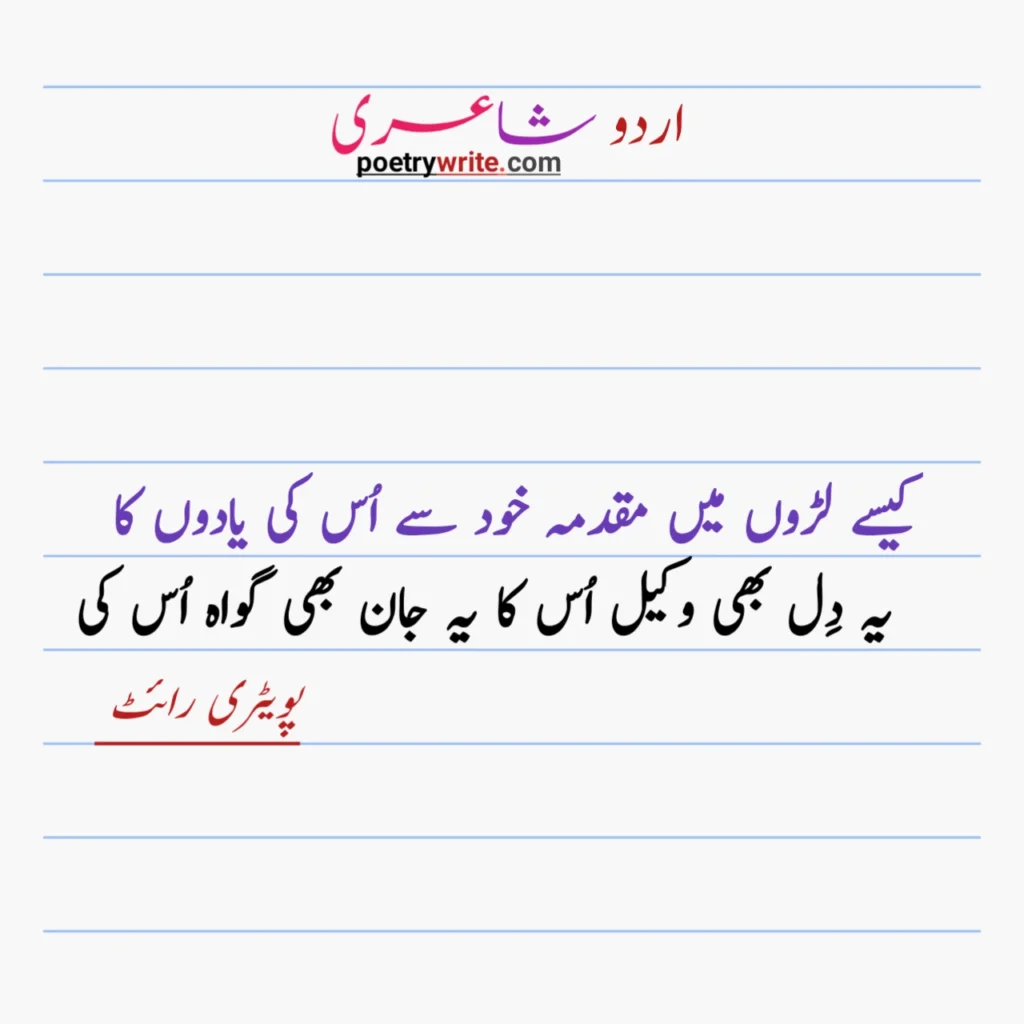 اردو شاعری
poetrywrite.com
کیسے لڑوں میں مقدمہ خود سے اُس کی یادوں کا
یہ دِل بھی وکیل اُس کا یہ جان بھی گواہ اُس کی
پویٹری رائٹ